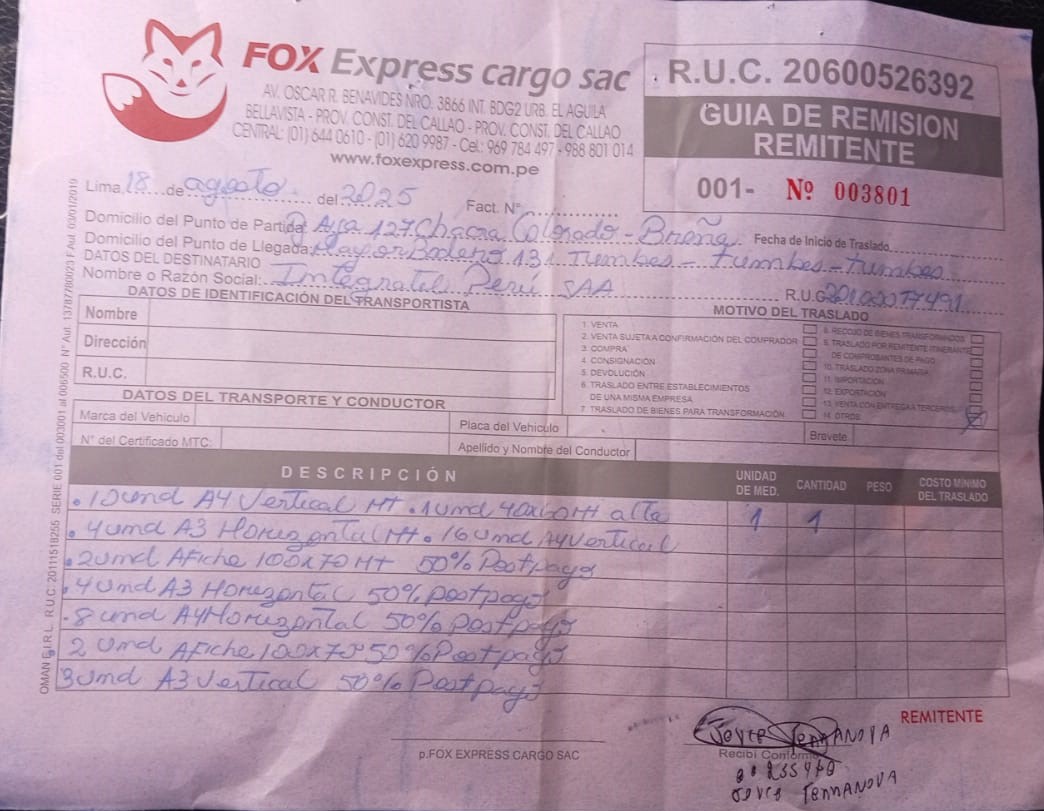 FOX Express cargo sac
AV. OSCAR R. BENAVIDES NRO. 3866 INT. BDG2 URB. EL AGUILA
BELLAVISTA - PROV. CONST. DEL CALLAO - PROV. CONST. DEL CALLAO
CENTRAL: (01) 644 0610 - (01) 620 9987 - Cel.: 969 784 497 - 988 801 014
www.foxexpress.com.pe
R.U.C. 20600526392
GUIA DE REMISION
REMITENTE
001- Nº 003801
Lima, 18 de agosto del 2025 Fact. Nº
Domicilio del Punto de Partida: 127 Chacra Colorado - Breña Fecha de Inicio de Traslado
Domicilio del Punto de Llegada: 131 Tumbes - Tumbes - Tumbes
DATOS DEL DESTINATARIO
Nombre o Razón Social: Integratel Perú SAA R.U.C. 20100017491
DATOS DE IDENTIFICACIÓN DEL TRANSPORTISTA
Nombre
Dirección
R.U.C.
MOTIVO DEL TRASLADO
1. VENTA
2. VENTA SUJETA A CONFIRMACIÓN DEL COMPRADOR
3. COMPRA
4. CONSIGNACIÓN
5. DEVOLUCIÓN
6. TRASLADO ENTRE ESTABLECIMIENTOS
DE UNA MISMA EMPRESA
7. TRASLADO DE BIENES PARA TRANSFORMACIÓN
8. RECOJO DE BIENES TRANSFORMADOS
9. TRASLADO POR REMITENTE ITINERANTE
DE COMPROBANTES DE PAGO
10. TRASLADO ZONA PRIMARIA
11. IMPORTACIÓN
12. EXPORTACIÓN
13. VENTA CON ENTREGA A TERCEROS
14. OTROS
DATOS DEL TRANSPORTE Y CONDUCTOR
Marca del Vehiculo Placa del Vehiculo Brevete
N° del Certificado MTC: Apellido y Nombre del Conductor
DESCRIPCIÓN UNIDAD DE MED. CANTIDAD PESO COSTO MÍNIMO DEL TRASLADO
. und A4 Vertical Ht . 1und 40x60 Ht alta 1 1
. 4und A3 Horizontal Ht . 16 und A4 Vertical
. 2und Afiche 100x70 Ht 50% Postpago
. 4und A3 Horizontal 50% postpago
. 8und A4 Horizontal 50% Postpago
. 2 und Afiche 100x70 50% Postpago
3und A3 Vertical 50% Postpago
p.FOX EXPRESS CARGO SAC
REMITENTE
Joyce TERRANOVA
Recibí Conforme
Joyce TERRANOVA